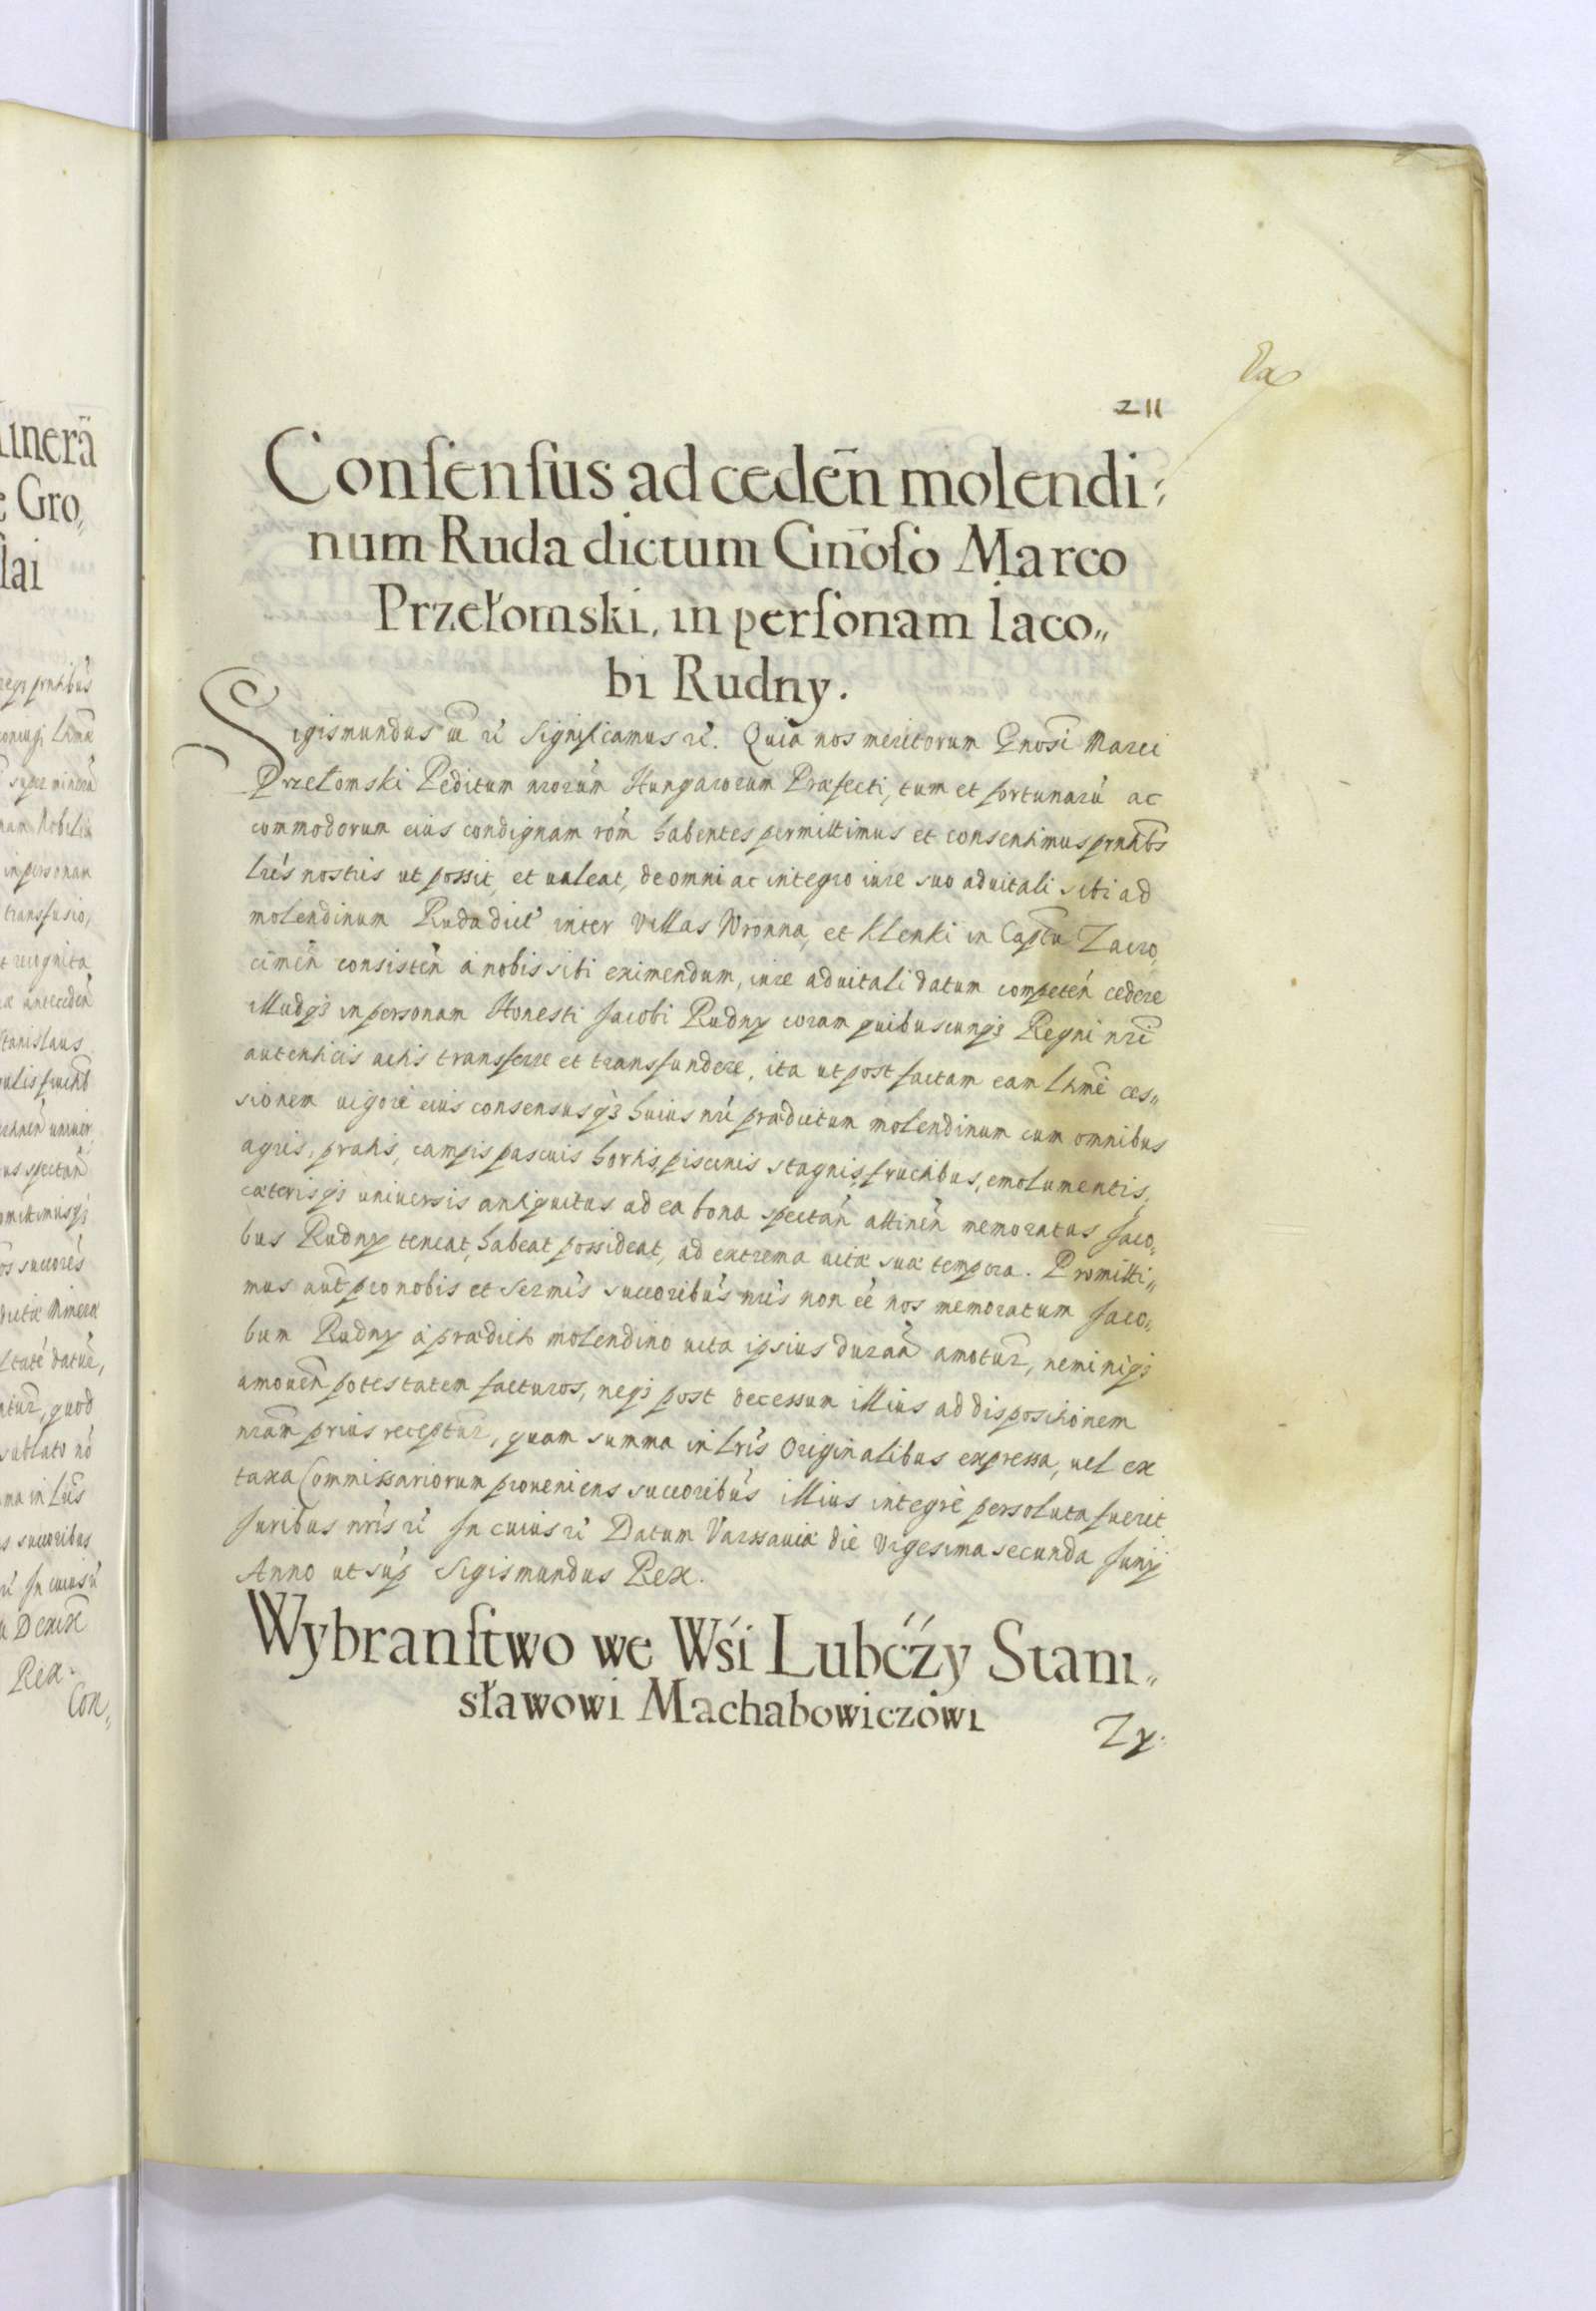 211
Consensus ad cedēn molendi:
num Ruda dictum Gn̄oso Marco
Przełomski, in personam Iaco„
bi Rudny.
Sigismundus III ꝛc̃ Significamus ꝛc̃. Quia nos meritorum Gnosi Marci
Przełomski Peditum nrorum Hungarorum Præfecti, tum et fortunarū ac
commodorum eius condignam rōm habentes permittimus et consentimus prntibs
lrīs nostris ut possit, et ualeat, de omni ac integro iure suo aduitali sibi ad
molendinum Ruda dict inter Villas Wronna, et Klenki in Captu Zacro,
cimēn consistēn à nobis sibi eximendum, iure aduitali datum competēn cedere
illudqȝ in personam Honesti Jacobi Rudny coram quibuscunqȝ Regni nri
autenticis actis transferre et transfundere, ita ut post factam eam ltmē ces„
sionem uigore eius consensusqȝ huius nrī prædictum molendinum cum omnibus
agris, pratis, campis pascuis hortis, piscinis stagnis, fructibus, emolumentis,
cæterisqȝ uniuersis antiquitus ad ea bona spectān attinēn memoratus Jaco„
bus Rudny teneat, habeat possideat, ad extrema uitæ suæ tempora. Promitti„
mus aut̄ pro nobis et Sermīs succoribūs nrīs non eē nos memoratum Jaco„
bum Rudny à prædicto molendino uita ipsius durān amotur̄, neminiqȝ
amouēn potestatem facturos, neqȝ post decessum illius ad dispositionem
nram prius receptur̄, quam summa in lrīs Originalibus expressa, uel ex
taxa Commissariorum proueniens succoribūs illius integrè persoluta fuerit
Juribus nrīs ꝛc̃ In cuius ꝛc̃ Datum Varsauiæ die Vigesima secunda Junij
Anno ut sup̄ Sigismundus Rex.
Wybranstwo we Wśi Lubćźy Stani„
sławowi Machabowiczowi
Zy: